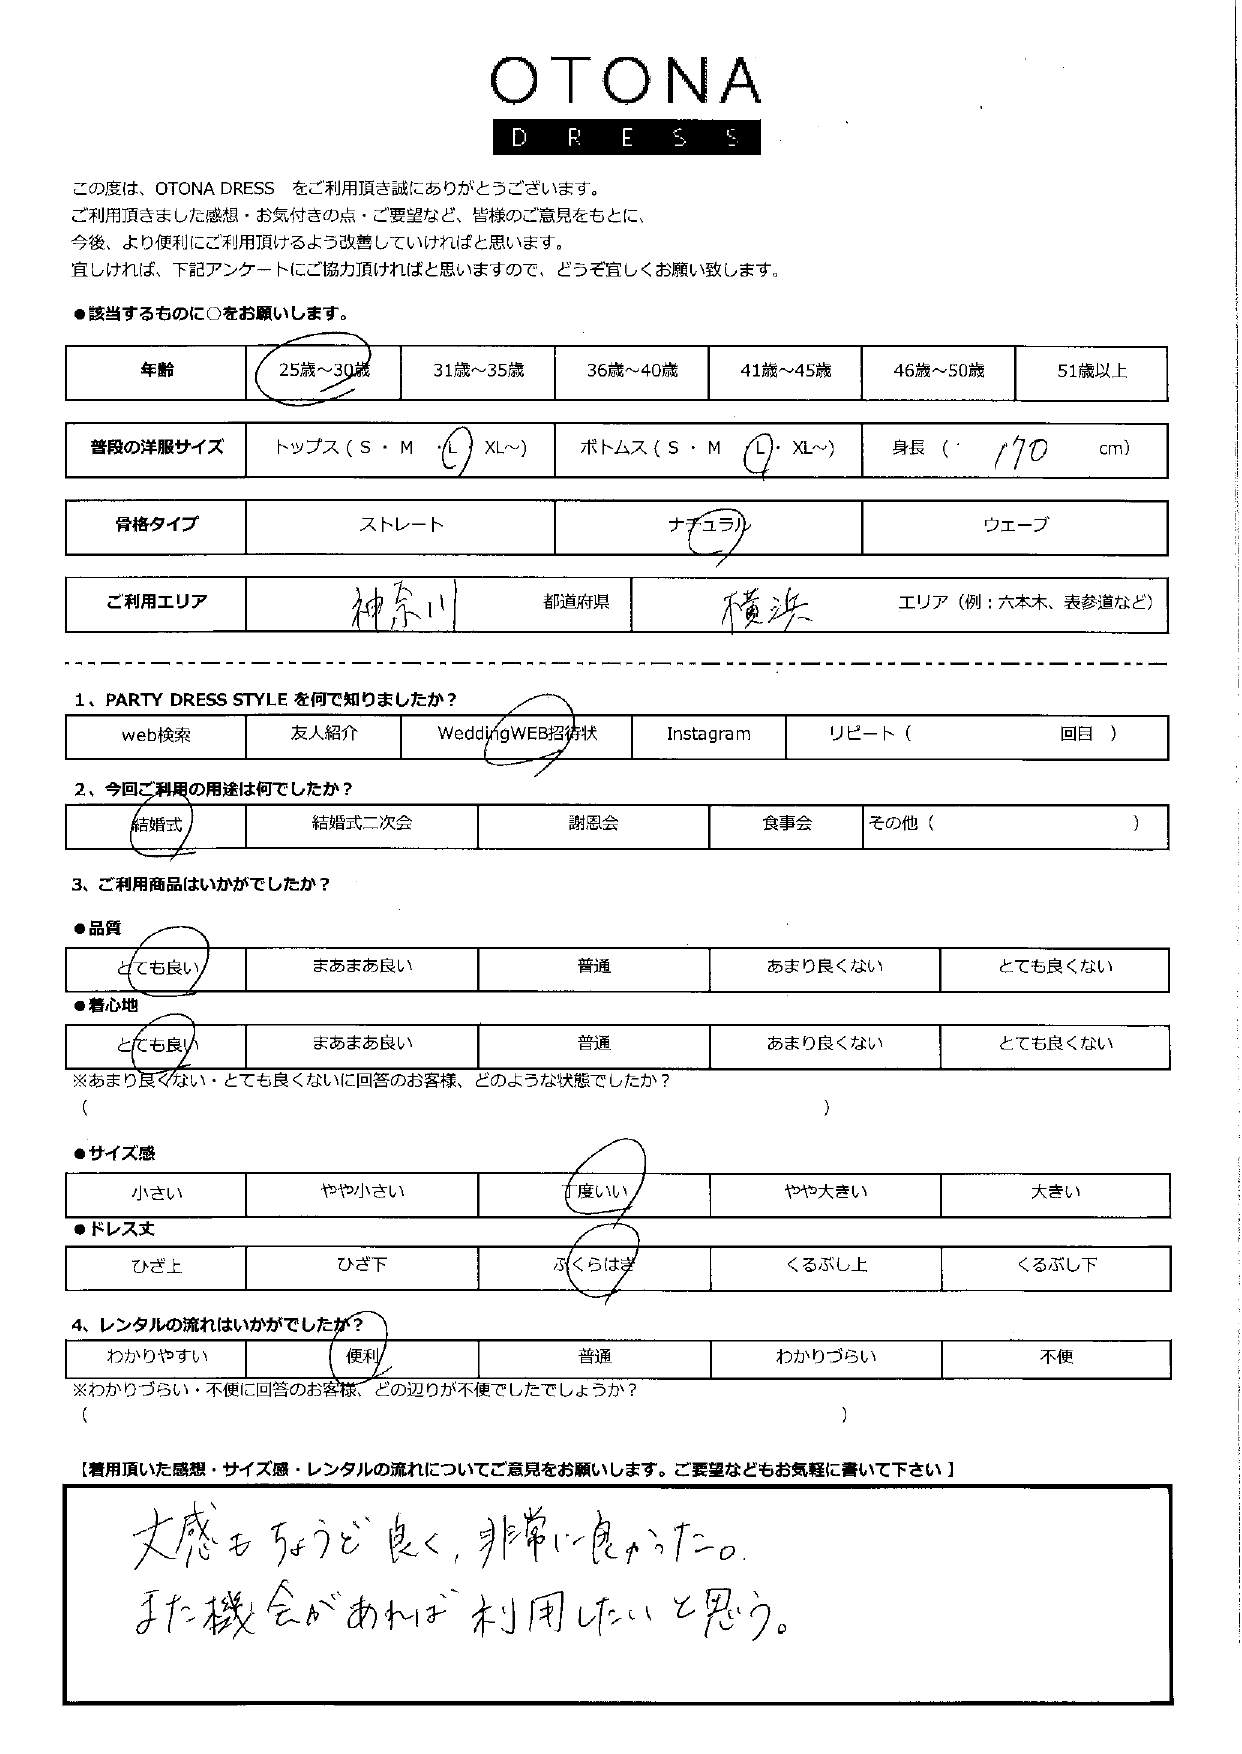 OTONA
DRESS
この度は、OTONA DRESS　をご利用頂き誠にありがとうございます。
ご利用頂きました感想・お気付きの点・ご要望など、皆様のご意見をもとに、
今後、より便利にご利用頂けるよう改善していければと思います。
宜しければ、下記アンケートにご協力頂ければと思いますので、どうぞ宜しくお願い致します。
●該当するものに○をお願いします。
年齢 25歳～30歳 31歳～35歳 36歳～40歳 41歳～45歳 46歳～50歳 51歳以上
普段の洋服サイズ トップス（ S ・ M ・ L ・ XL～） ボトムス（ S ・ M ・ L ・ XL～） 身長 （ 170 cm）
骨格タイプ ストレート ナチュラル ウェーブ
ご利用エリア 神奈川 都道府県 横浜 エリア（例：六本木、表参道など）
1、PARTY DRESS STYLE を何で知りましたか？
web検索 友人紹介 WeddingWEB招待状 Instagram リピート（ 回目 ）
2、今回ご利用の用途は何でしたか？
結婚式 結婚式二次会 謝恩会 食事会 その他（ ）
3、ご利用商品はいかがでしたか？
●品質
とても良い まあまあ良い 普通 あまり良くない とても良くない
●着心地
とても良い まあまあ良い 普通 あまり良くない とても良くない
※あまり良くない・とても良くないに回答のお客様、どのような状態でしたか？
（ ）
●サイズ感
小さい やや小さい 丁度いい やや大きい 大きい
●ドレス丈
ひざ上 ひざ下 ふくらはぎ くるぶし上 くるぶし下
4、レンタルの流れはいかがでしたか？
わかりやすい 便利 普通 わかりづらい 不便
※わかりづらい・不便に回答のお客様、どの辺りが不便でしたでしょうか？
（ ）
【着用頂いた感想・サイズ感・レンタルの流れについてご意見をお願いします。ご要望などもお気軽に書いて下さい 】
丈感もちょうど良く、非常に良かった。
また機会があれば利用したいと思う。